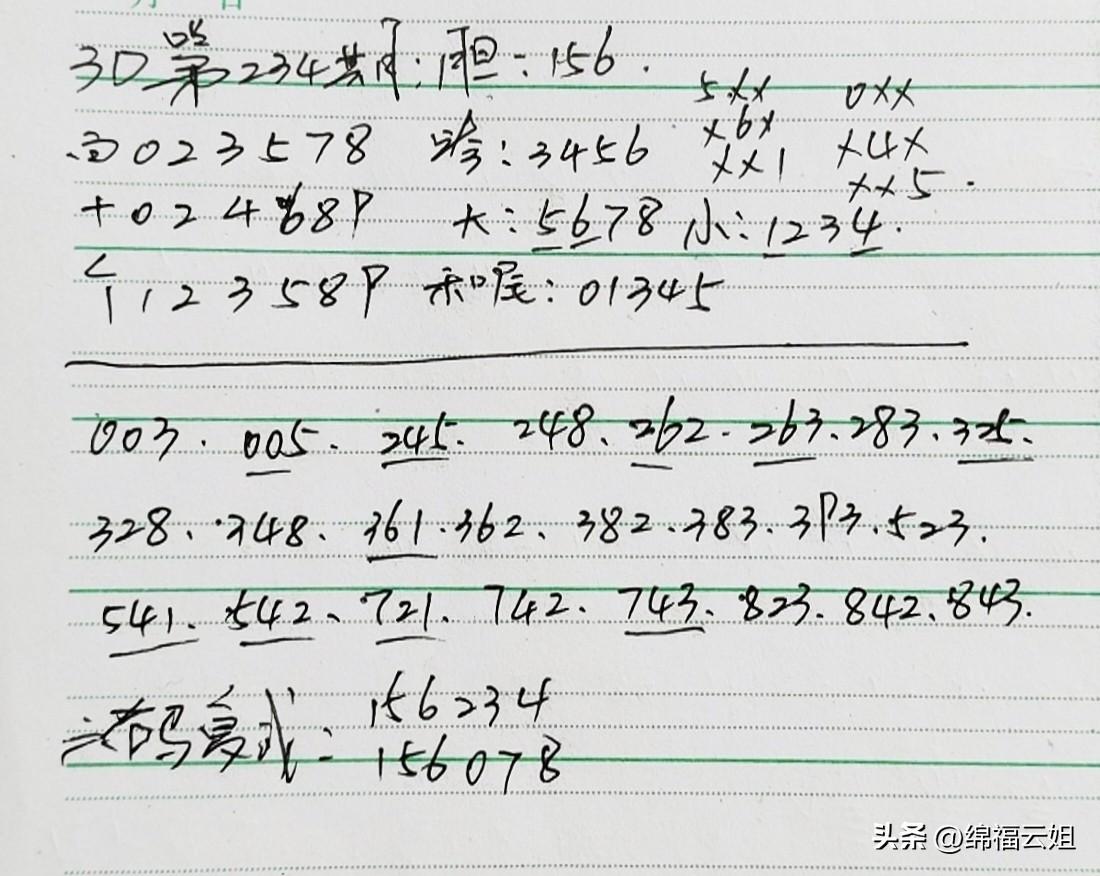 3D第234期:胆:156.
5XX 0XX
百023578 跨:3456 X6X X4X
XX1 XX5.
十024689 大:5678 小:1234.
个1123589 和尾:01345
003.005.245.248.262.263.283.325.
328.348.361.362.382.383.393.523.
541.542.721.742.743.823.842.843.
六码复式:156234
156078
头条 @绵福云姐